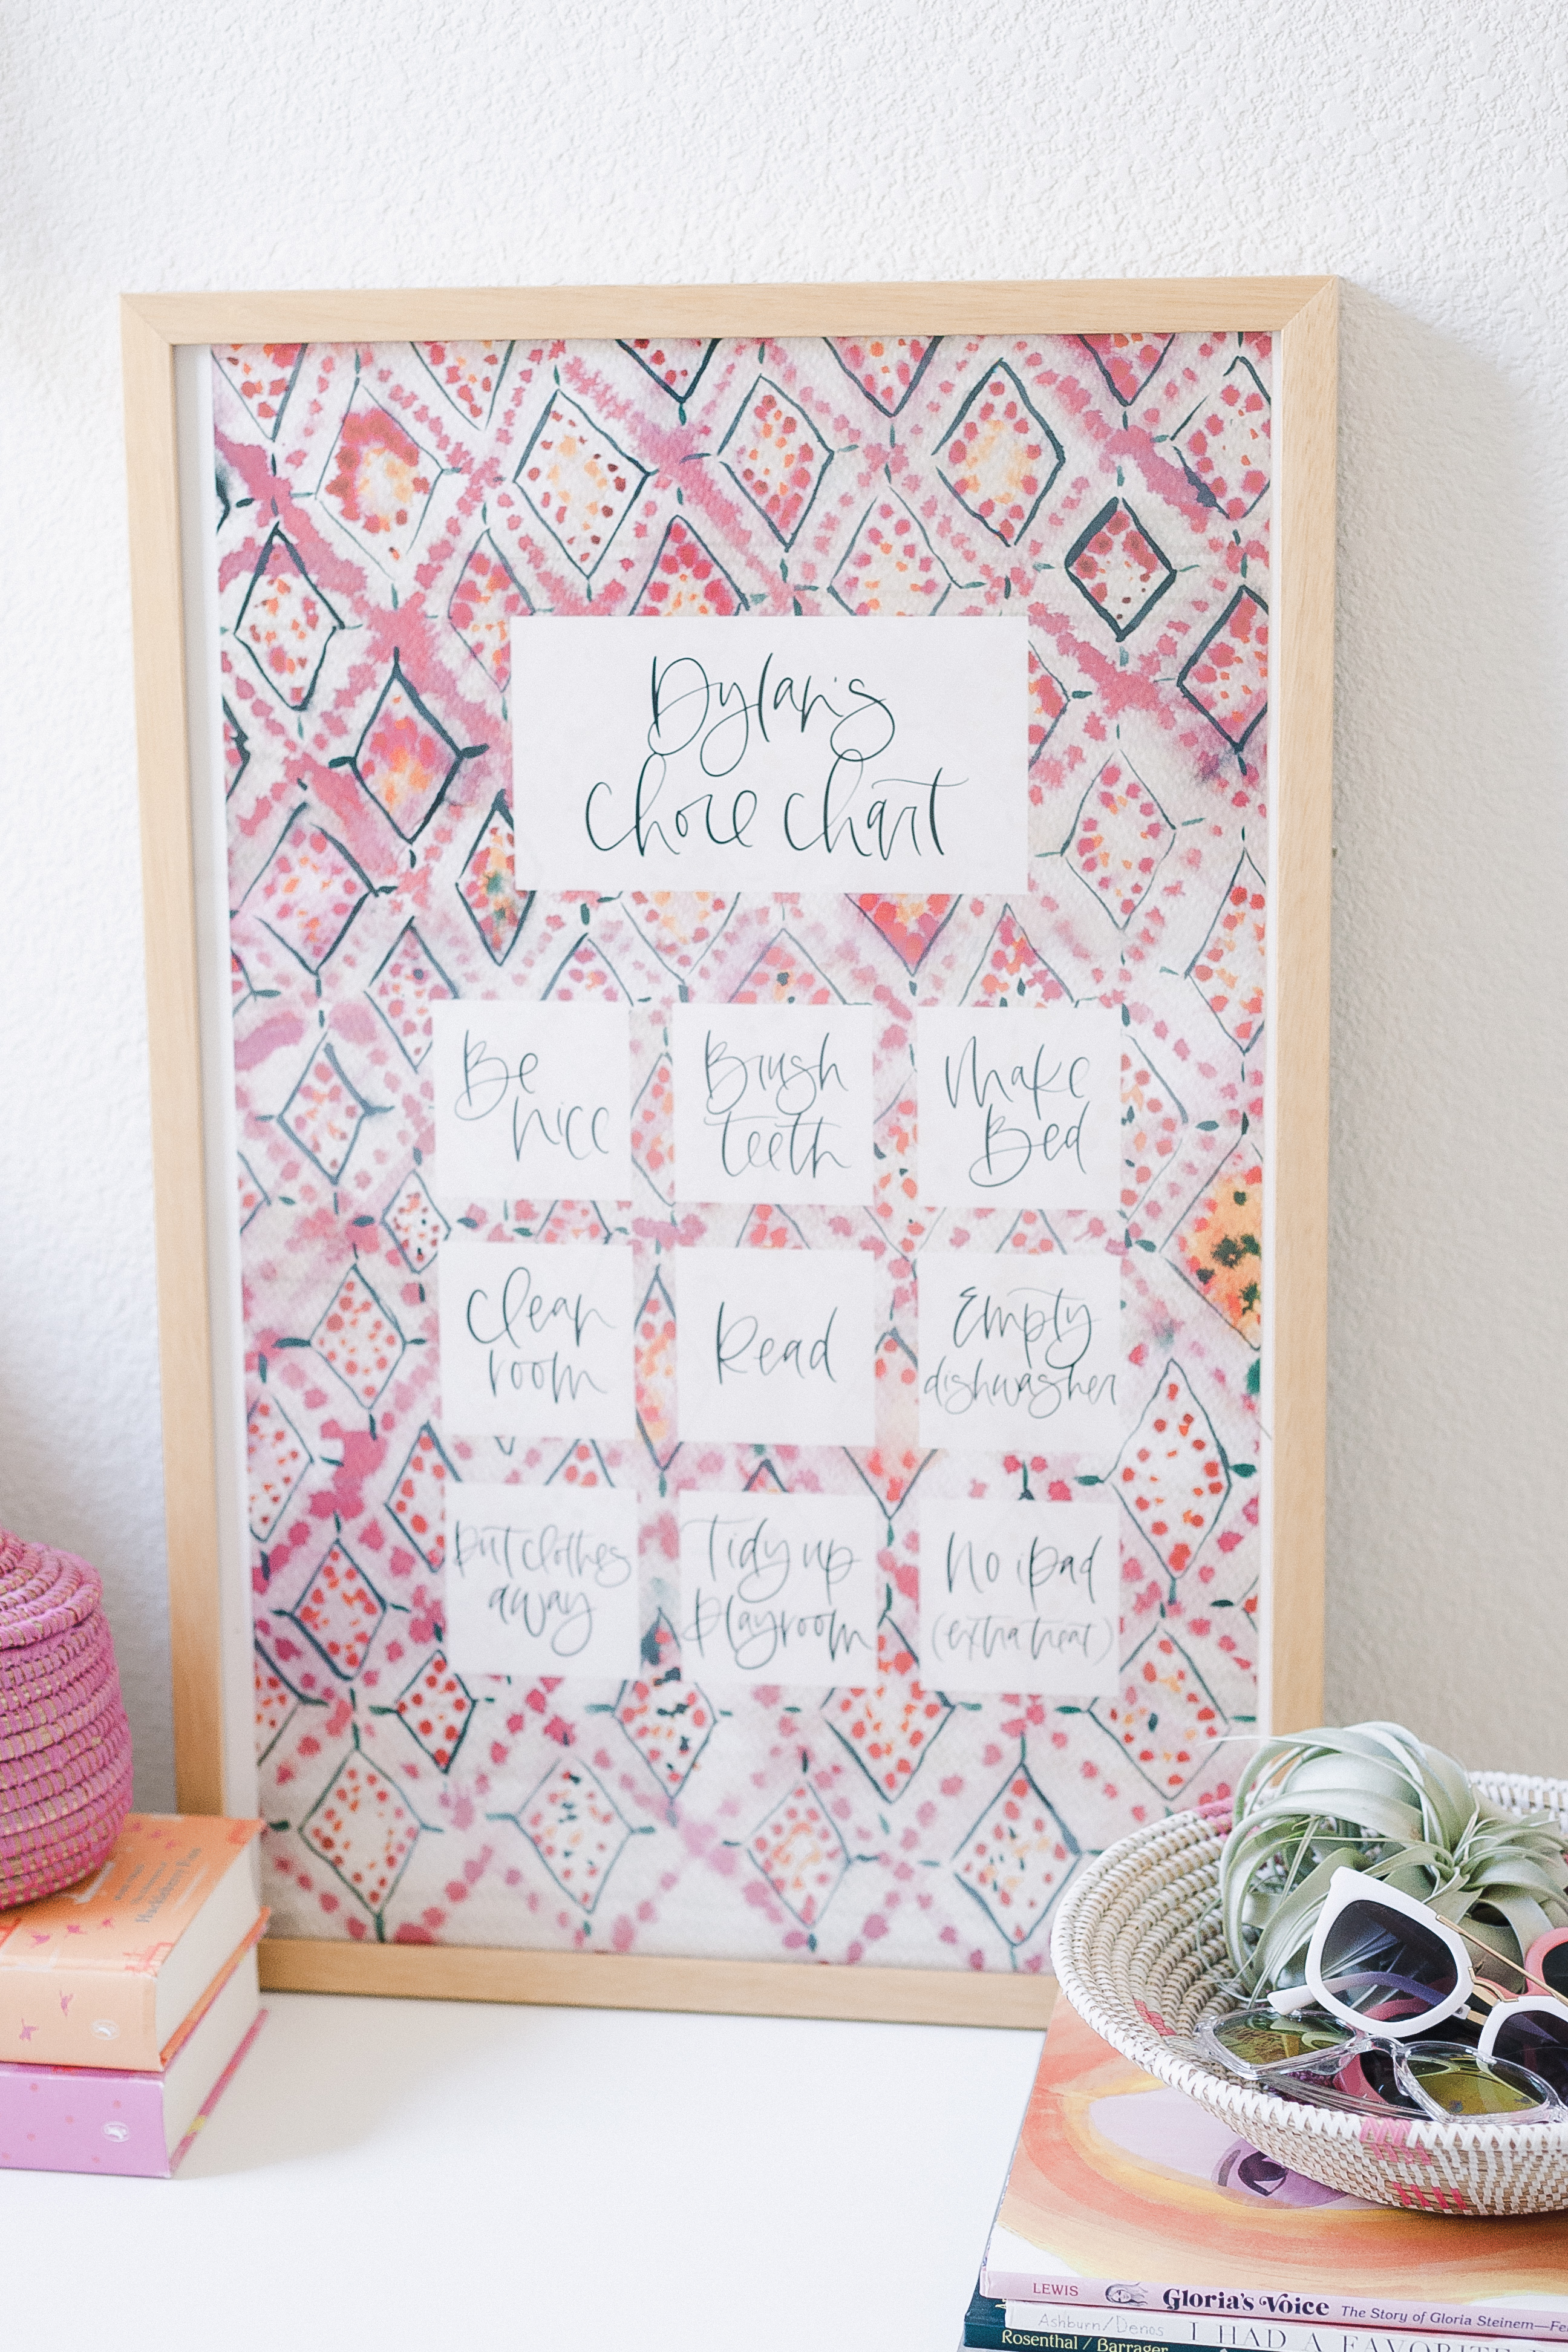 Dylan's
Chore Chart
Be
nice
Brush
teeth
Make
Bed
Clean
room
Read
Empty
dishwasher
Put clothes
away
Tidy up
playroom
No ipad
(extra treat)
LEWIS
Gloria's Voice The Story of Gloria Steinem—Fe
Ashburn/Denos
I HAD A FAVORITE
Rosenthal / Barrager